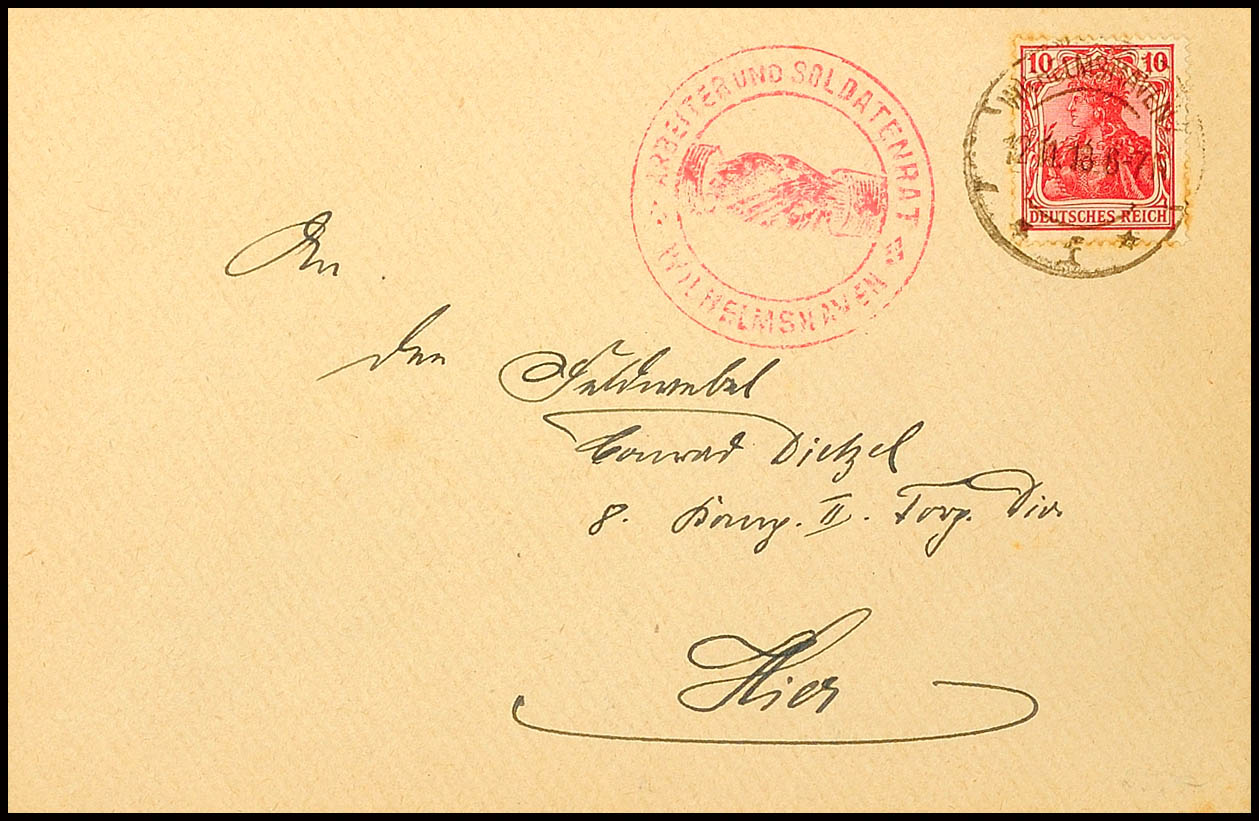 ARBEITER UND SOLDATENRAT
WILHELMSHAVEN
10 10
WILHELMSHAVEN
12.11.18.6-7
DEUTSCHES REICH
An
den Feldwebel
Conrad Dietzel
8. Komp. II. Torp. Div.
Hier